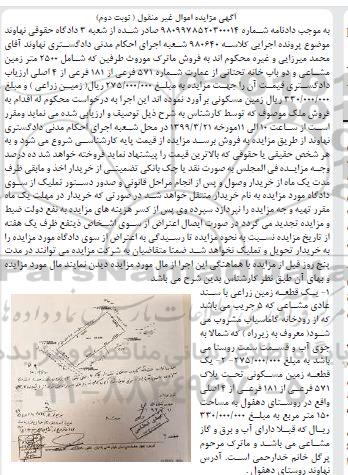 آگهی مزایده اموال غیر منقول ( نوبت دوم)
به موجب دادنامه شماره ۹۸۰۹۹۷۸۵۲۰۳۰۰۰۱۴ صادر شده از شعبه ۳ دادگاه حقوقی نهاوند
موضوع پرونده اجرایی کلاسه ۹۸۰۶۴۰ شعبه اجرای احکام مدنی دادگستری نهاوند آقای
محمد میرزایی و غیره محکوم اند به فروش ماترک موروث طرفین که شامل ۲۵۰۰ متر زمین
مشاعی و دو باب خانه تحتانی از عمارت شماره ۵۷۱ فرعی از ۱۸۱ فرعی از ۴ اصلی ارزیاب
دادگستری قیمت آن را جهت مزایده به مبلغ ۲۷۵/۰۰۰/۰۰۰ ریال( زمیـن زراعی ) و مبلغ
۳۳۰/۰۰۰/۰۰۰ ریال زمین مسکونی برآورد نموده اند این اجرا به درخواست محکوم له اقدام به
فروش ملک موصوف که توسط کارشناس به شرح ذیل توصیف و ارزیابی شده می نماید ومقرر
است از ساعت ۱۰ الی ۱۱مورخه ۱۳۹۹/۳/۲۱ در محل شعبه اجرای احکام مدنی دادگستری
نهاوند از طریق مزایده به فروش برسد مزایده از قیمت پایه کارشناسی شروع می شود و به
هر شخص حقیقی یا حقوقی که بالاترین قیمت را پیشنهاد نماید فروخته خواهد شد ده درصد
وجه مزایـده فی المجلس به صورت نقد یا چک بانکی تضمینـی از خریدار اخذ و مابقی ظرف
مدت یک ماه از خریدار وصول و پس از انجام مراحل قانونی و صدور دستور تملیک از سوی
دادگاه مورد مزایده به نام خریدار منتقل خواهد شد در صورتی که خریدار در مهلت یک ماه
مقرر تهیه و جه مزایده را نپردازد سپرده وی پس از کسر هزینه های مزایده به نفع دولت ضبط
و مزایده تجدید می گردد در صورت ایصال اعتراض از سوی اشخاص ذینفع ظرف یک هفته
از تاریخ مزایده نسبت به نحوه مزایده تا رسیدگی به اعتراض از سوی دادگاه مورد مزایده را
به خریدار تحویل و تملیک نخواهد شد ضمنا متقاضیان به شرکت مزایده می توانند در مدت
پنج روز قبل از مزایده با هماهنگی این اجرا از مال مورد مزایده دیدن نمایند مال مورد مزایده
و بهای آن طبق نظر کارشناس بدین شرح می باشد
۱- یـک قطعـه زمین زراعی با سـند
عادی مشـاعی که ۵ جریب می باشد
که از رودخانه گاماسیاب مشروب می
شـود( معروف به زیر راه ) که شمالا به
جوی آب و قسـمت پشت روستا می
باشد به مبلغ ۲۷۵/۰۰۰/۰۰۰ ۲- یک
قطعه زمین مسکونی تحت پلاک
۵۷۱ فرعی از ۱۸۱ فرعی از ۴ اصلی
واقع در روسـتای دهفول به مساحت
۱۵۰ متر مربع به مبلغ ۳۳۰/۰۰۰/۰۰۰
ریـال که قبلا دارای آب و برق و گاز
مشاعی می باشـد و ماترک مرحوم
پرگل خانم خدارحمی است. آدرس
نهاوند روستای دهفول .